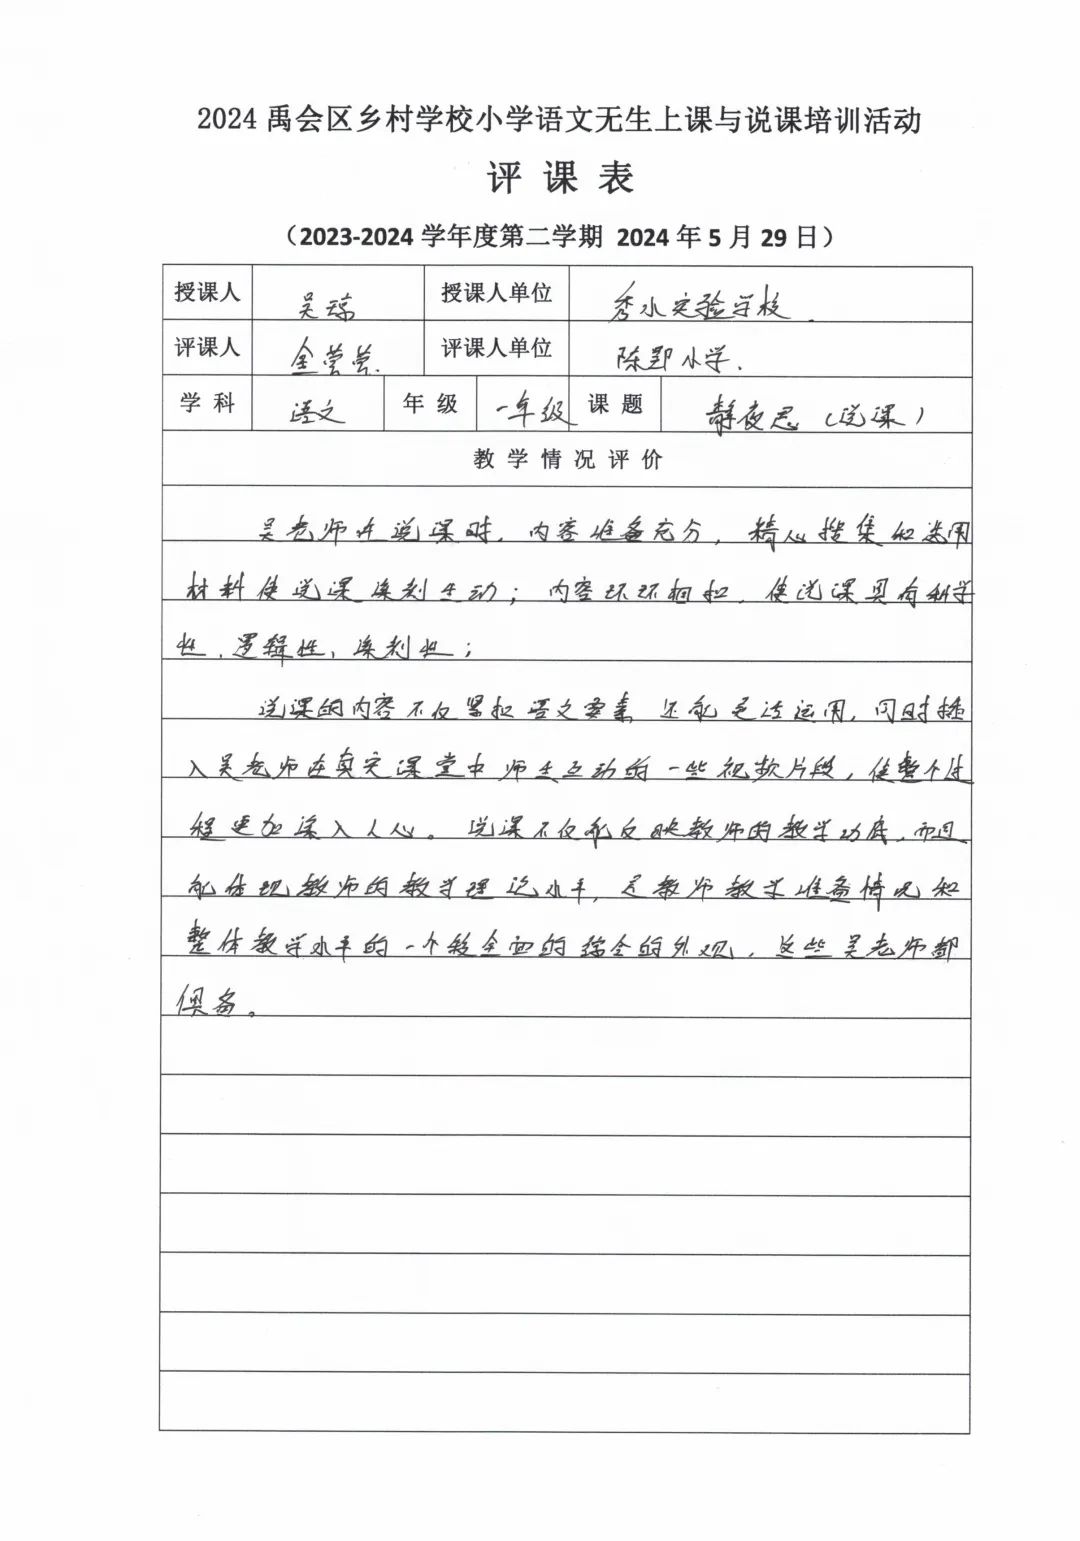 2024禹会区乡村学校小学语文无生上课与说课培训活动
评 课 表
（2023-2024 学年度第二学期 2024 年 5 月 29 日）
授课人 吴琼 授课人单位 秀水实验学校.
评课人 金莹莹. 评课人单位 陈郢小学.
学 科 语文 年 级 一年级 课 题 静夜思（说课）
教 学 情 况 评 价
吴老师在说课时，内容准备充分，精心搜集和选用
材料使说课深刻生动；内容环环相扣，使说课具有科学
性、逻辑性、深刻性；
说课的内容不仅紧扣语文要素 还能灵活运用，同时插
入吴老师在真实课堂中师生互动的一些视频片段，使整个过
程更加深入人心。说课不仅能反映教师的教学功底，而且
能体现教师的教学理论水平，是教师教学准备情况和
整体教学水平的一个较全面的综合的外观，这些吴老师都
俱备。